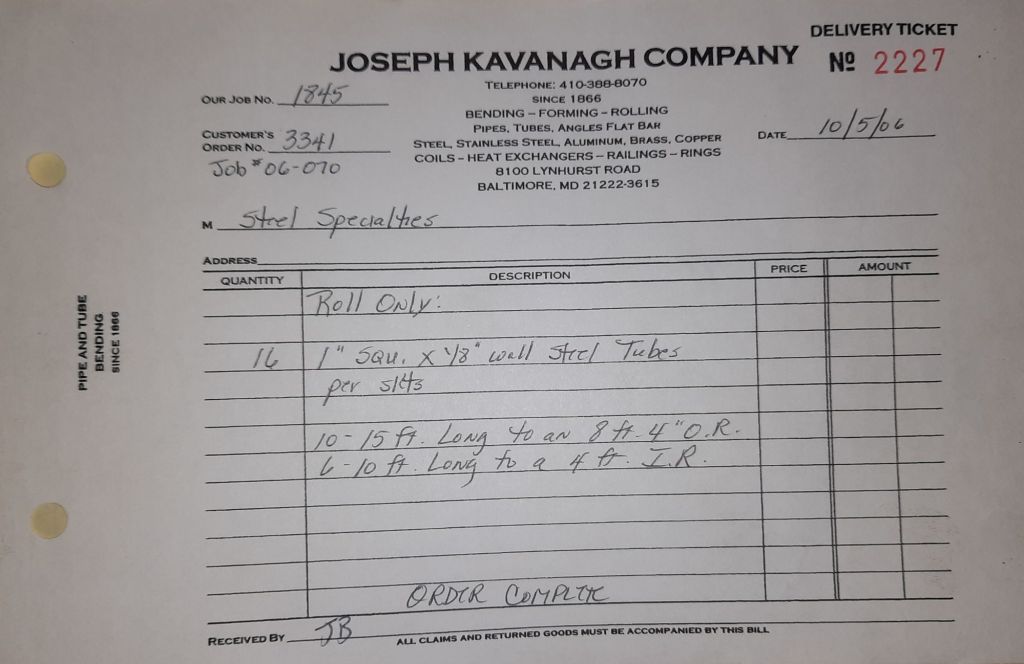 DELIVERY TICKET
JOSEPH KAVANAGH COMPANY
Nº 2227
TELEPHONE: 410-388-8070
SINCE 1866
BENDING – FORMING – ROLLING
PIPES, TUBES, ANGLES FLAT BAR
STEEL, STAINLESS STEEL, ALUMINUM, BRASS, COPPER
COILS – HEAT EXCHANGERS – RAILINGS – RINGS
8100 LYNHURST ROAD
BALTIMORE, MD 21222-3615
OUR JOB NO. 1845
CUSTOMER'S
ORDER NO. 3341
Job # 06-070
DATE 10/5/06
M Steel Specialties
ADDRESS
QUANTITY DESCRIPTION PRICE AMOUNT
Roll Only:
16 1" Squ. x 1/8" wall Steel Tubes
per skts
10-15 ft. Long to an 8 ft. 4" O.R.
6-10 ft. Long to a 4 ft. I.R.
ORDER COMPLETE
RECEIVED BY JB
ALL CLAIMS AND RETURNED GOODS MUST BE ACCOMPANIED BY THIS BILL
PIPE AND TUBE
BENDING
SINCE 1866